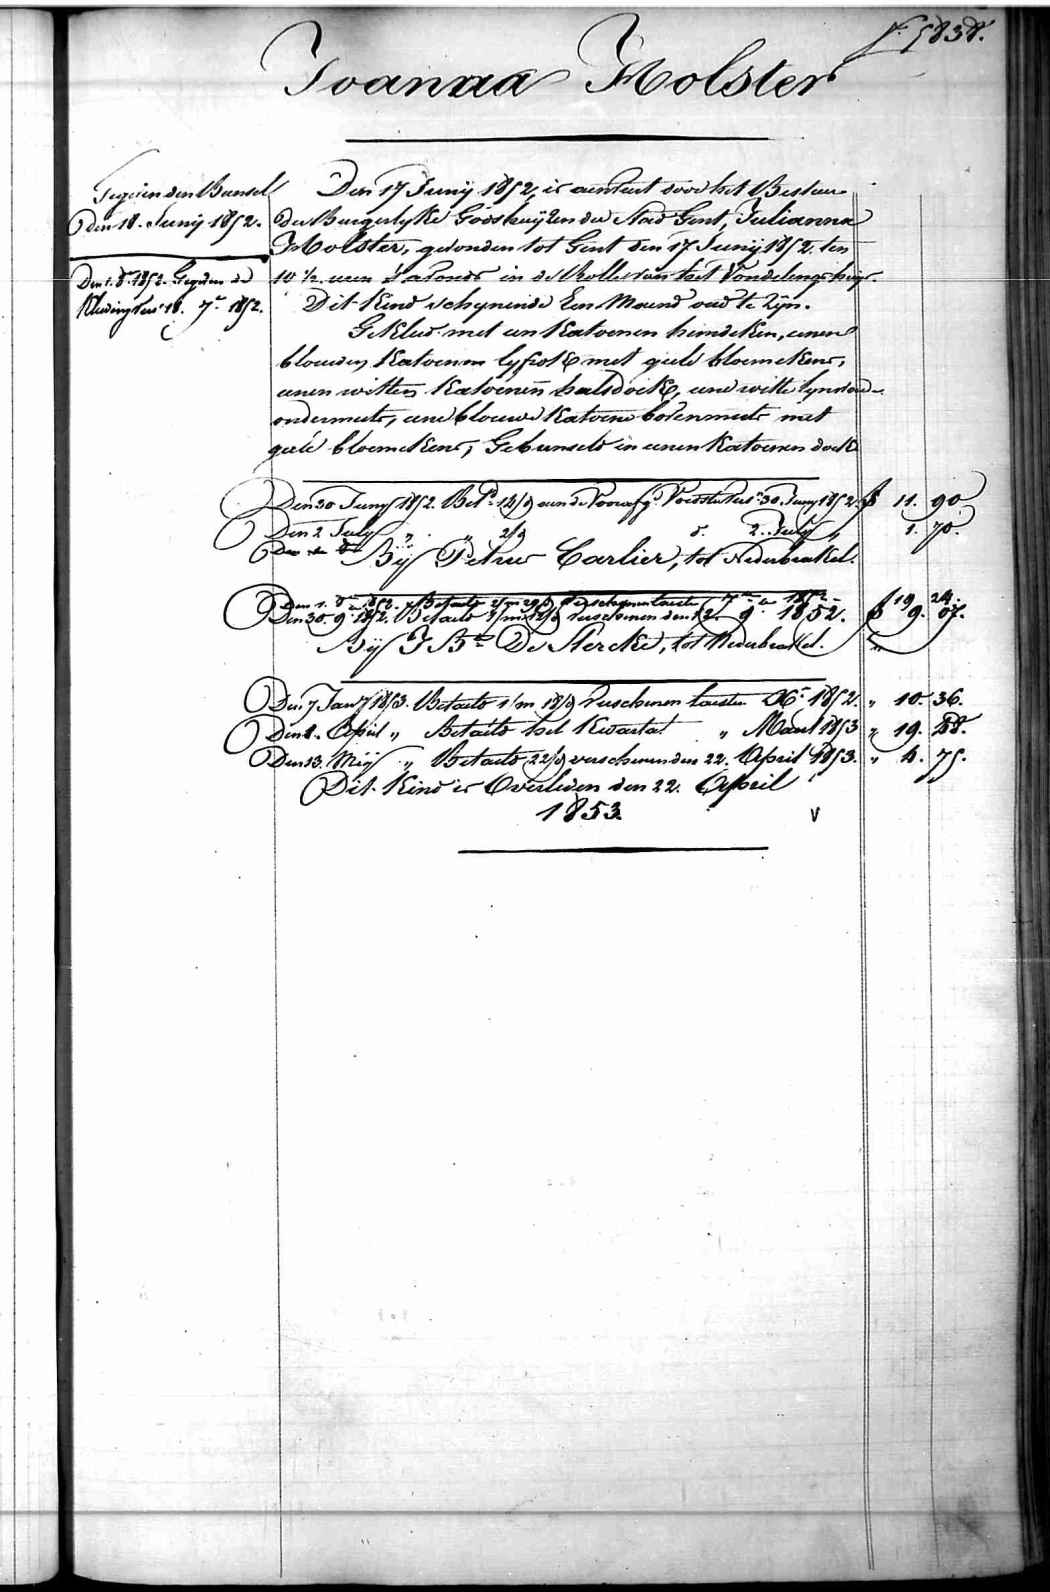 5838.
Joanna Holster
Gegeven den Bunsel
Den 18. Junij 1852.
Den 1. 8.e 1852. Gegeven de
Kleeding vers 18. 7.r 1852.
Den 17 Junij 1852, is aenveert door het Bestuer
der Burgerlyke Godshuijzen der Stad Gent, Julianna
Holster, gevonden tot Gent den 17 Junij 1852. ten
10 ½ uren S'avonds in de Rolle van het Vondelinghuys.
Dit Kind schynende Een Maend oud te Zyn.
Gekleed met een Katoenen hemdeken, eenen
blauwen Katoenen lyfrok met geele bloemekens,
eenen witten Katoenen halsdoek, eene witte lynwade
ondermuts, eene blauwe Katoene bovenmuts met
geele bloemekens, Gebunseld in eenen Katoenen doek
Den 30 Juny 1852. Bet.d 14/9 aen de Voorafg.e Voedster vers. 30. Juny 1852. f 11. 90.
Den 2 July " " 2/9 d. 2. July " 1. 70.
Bij Petrus Carlier, tot Nederbrakel.
Den 1. 8.e 1852. Betaeld 2/m 29/9 verschenen laesten 7.r 1852 f 19 24.
Den 30. 9.r 1852. Betaeld 1/m 12/9 verschenen den 12 9.r 1852. f 9. 07.
Bij J B.te De Stercke, tot Nederbrakel.
Den 7 Jan.y 1853. Betaeld 1/m 18/9 verschenen laesten X.r 1852. " 10. 36.
Den 8. April " Betaeld het Kwartael " Maart 1853 " 19. 88.
Den 13. Meij " Betaeld 22/9 verschenen den 22. April 1853. " 4. 75.
Dit Kind is Overleden den 22. April
1853.
V